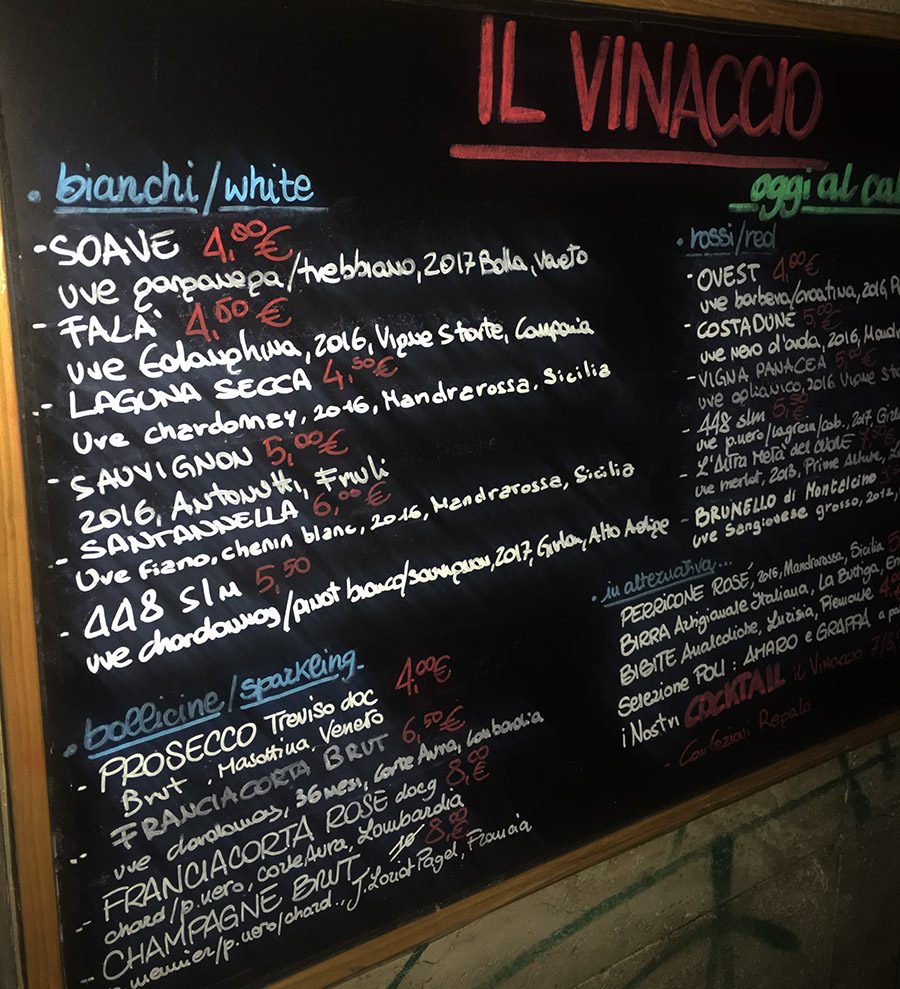 IL VINACCIO
oggi al cal
bianchi/white
- SOAVE 4,00€
uve garganega/trebbiano, 2017 Bolla, Veneto
- FALÀ 4,00€
uve Falanghina, 2016, Vigne Storte, Campania
- LAGUNA SECCA 4,50€
Uve chardonnay, 2016, Mandrarossa, Sicilia
- SAUVIGNON 5,00€
2016, Antonutti, Friuli
- SANTANNELLA 6,00€
Uve Fiano, chenin blanc, 2016, Mandrarossa, Sicilia
- 448 slm 5,50
uve chardonnay/pinot bianco/sauvignon, 2017, Girlan, Alto Adige
bollicine/sparkling
- PROSECCO Treviso doc 4,00€
Brut, Masottina, Veneto
- FRANCIACORTA BRUT 6,50€
uve chardonnay, 36 mesi, Corte Aura, Lombardia
- FRANCIACORTA ROSÉ docg 8,00€
chard/p.nero, Corte Aura, Lombardia
- CHAMPAGNE BRUT 8,00€
meunier/p.nero/chard., J. Loriot-Pagel, Francia
rossi/red
- OVEST 4,00€
uve barbera/croatina, 2016, P
- COSTADUNE 5,00
uve nero d'avola, 2016, Mandr
- VIGNA PANACEA 5,00€
uve aglianico, 2016 Vigne Sto
- 448 slm 5,50
uve p.nero/lagrein/cab., 2017, Girl
- L'Altra Metà del 7,50€
uve merlot, 2013, Prime Alture, L
- BRUNELLO di Montalcino
uve Sangiovese grosso, 2012,
in alternativa...
PERRICONE ROSÉ, 2016, Mandrarossa, Sicilia 5
BIRRA Artigianale Italiana, La Buttiga, Em
BIBITE Analcoliche, Lurisia, Piemonte 4,
Selezione POLI: AMARO e GRAPPA a pa
i Nostri COCKTAIL il Vinaccio: 7/8,
- Confezioni Regalo